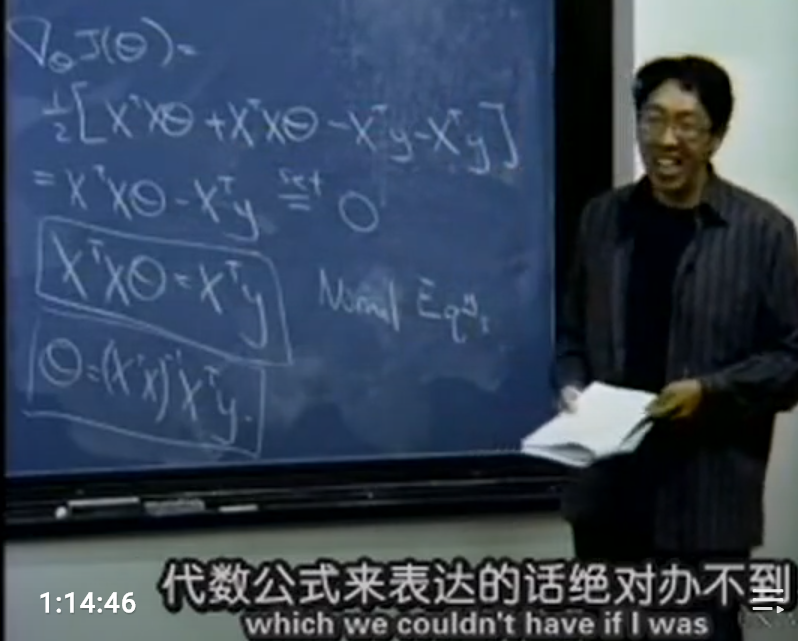 ∇_θ J(θ) =
½[XᵀXθ + XᵀXθ - Xᵀy - Xᵀy]
= XᵀXθ - Xᵀy set= 0
XᵀXθ = Xᵀy
Normal Eqⁿs
θ = (XᵀX)⁻¹Xᵀy.
代数公式来表达的话绝对办不到
1:14:46
which we couldn't have if I was